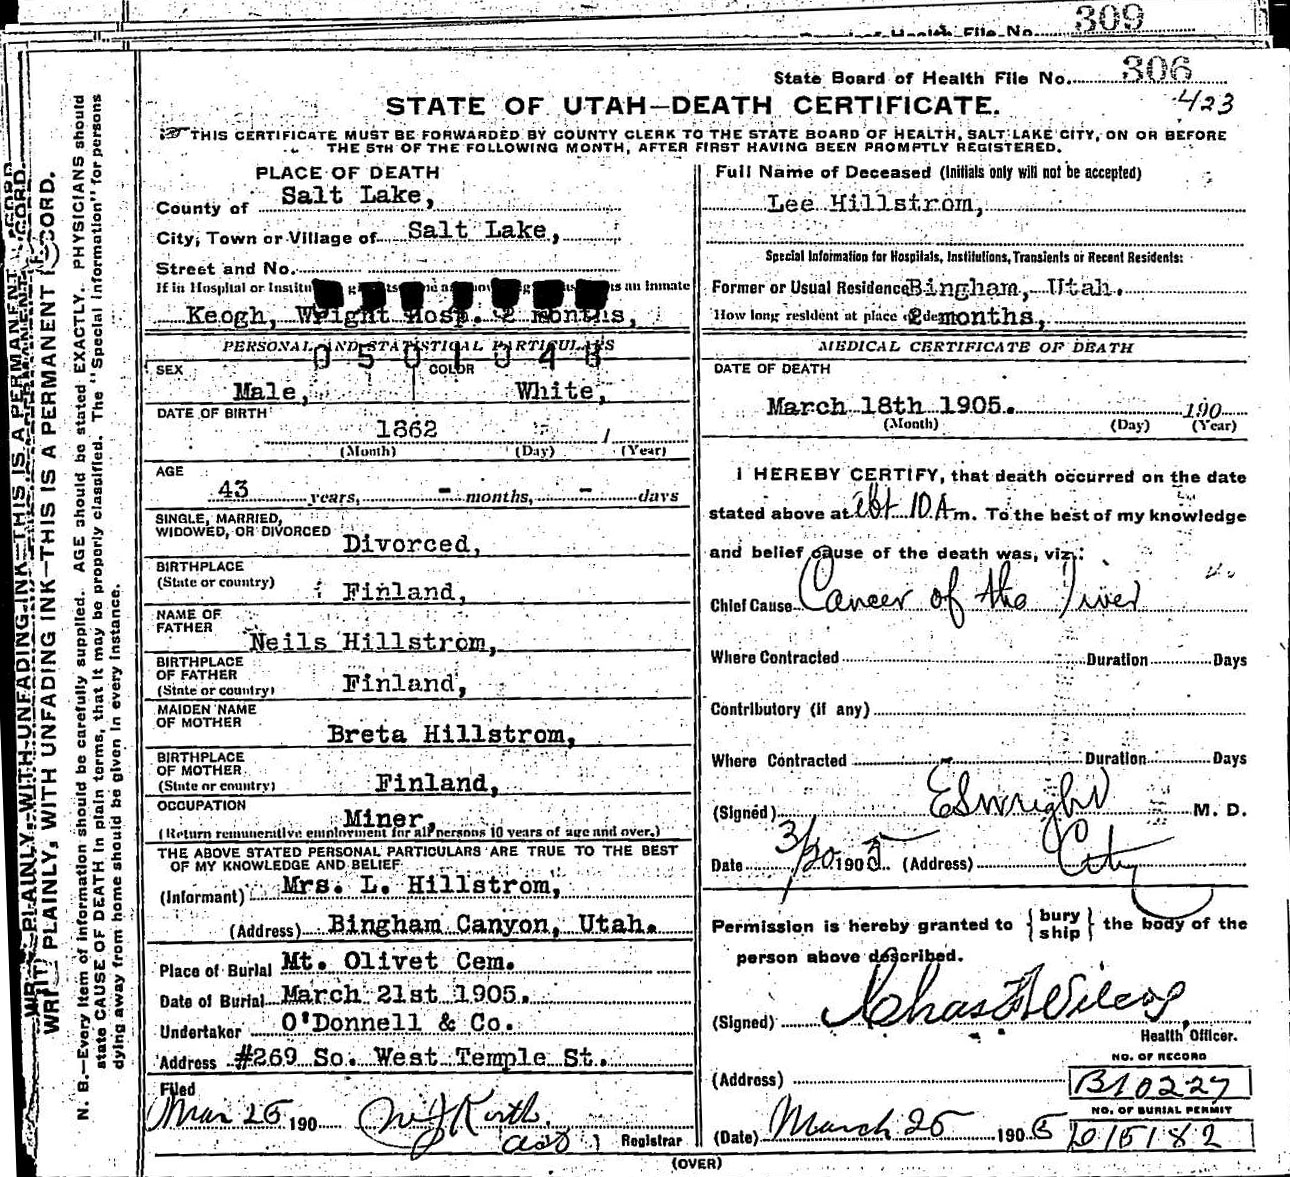 309
Board of Health File No.
State Board of Health File No. 306
STATE OF UTAH—DEATH CERTIFICATE.
423
THIS CERTIFICATE MUST BE FORWARDED BY COUNTY CLERK TO THE STATE BOARD OF HEALTH, SALT LAKE CITY, ON OR BEFORE
THE 5TH OF THE FOLLOWING MONTH, AFTER FIRST HAVING BEEN PROMPTLY REGISTERED.
WRITE PLAINLY, WITH UNFADING INK—THIS IS A PERMANENT RECORD.
WRITE PLAINLY, WITH UNFADING INK—THIS IS A PERMANENT RECORD.
N. B.—Every item of information should be carefully supplied. AGE should be stated EXACTLY. PHYSICIANS should
state CAUSE OF DEATH in plain terms, that it may be properly classified. The "Special Information" for persons
dying away from home should be given in every instance.
PLACE OF DEATH
County of Salt Lake,
City, Town or Village of Salt Lake,
Street and No.
If in Hospital or an Inmate
Keogh, Wright Hosp. 2 months,
PERSONAL AND STATISTICAL PARTICULARS
0501048
SEX COLOR
Male, White,
DATE OF BIRTH
1862 /
(Month) (Day) (Year)
AGE
43 years, - months, - days
SINGLE, MARRIED,
WIDOWED, OR DIVORCED Divorced,
BIRTHPLACE
(State or country) Finland,
NAME OF
FATHER
Neils Hillstrom,
BIRTHPLACE
OF FATHER
(State or country) Finland,
MAIDEN NAME
OF MOTHER
Breta Hillstrom,
BIRTHPLACE
OF MOTHER
(State or country) Finland,
OCCUPATION
Miner,
(Return remunerative employment for all persons 10 years of age and over.)
THE ABOVE STATED PERSONAL PARTICULARS ARE TRUE TO THE BEST
OF MY KNOWLEDGE AND BELIEF
(Informant) Mrs. L. Hillstrom,
(Address) Bingham Canyon, Utah.
Place of Burial Mt. Olivet Cem.
Date of Burial March 21st 1905.
Undertaker O'Donnell & Co.
Address #269 So. West Temple St.
Filed
Mar 25 190
Registrar
Full Name of Deceased (Initials only will not be accepted)
Lee Hillstrom,
Special Information for Hospitals, Institutions, Transients or Recent Residents:
Former or Usual Residence Bingham, Utah.
How long resident at place of de 2 months,
MEDICAL CERTIFICATE OF DEATH
DATE OF DEATH
March 18th 1905. 190
(Month) (Day) (Year)
I HEREBY CERTIFY, that death occurred on the date
stated above at abt 10 A m. To the best of my knowledge
and belief cause of the death was, viz.:
Chief Cause Cancer of the liver
Where Contracted Duration Days
Contributory (if any)
Where Contracted Duration Days
(Signed) E S Wright M. D.
Date 3/20 1905 (Address) City
Permission is hereby granted to { bury ship } the body of the
person above described.
(Signed) Chas F Wilcox
Health Officer.
NO. OF RECORD
(Address) B10227
NO. OF BURIAL PERMIT
(Date) March 25 1905 615182
(OVER)